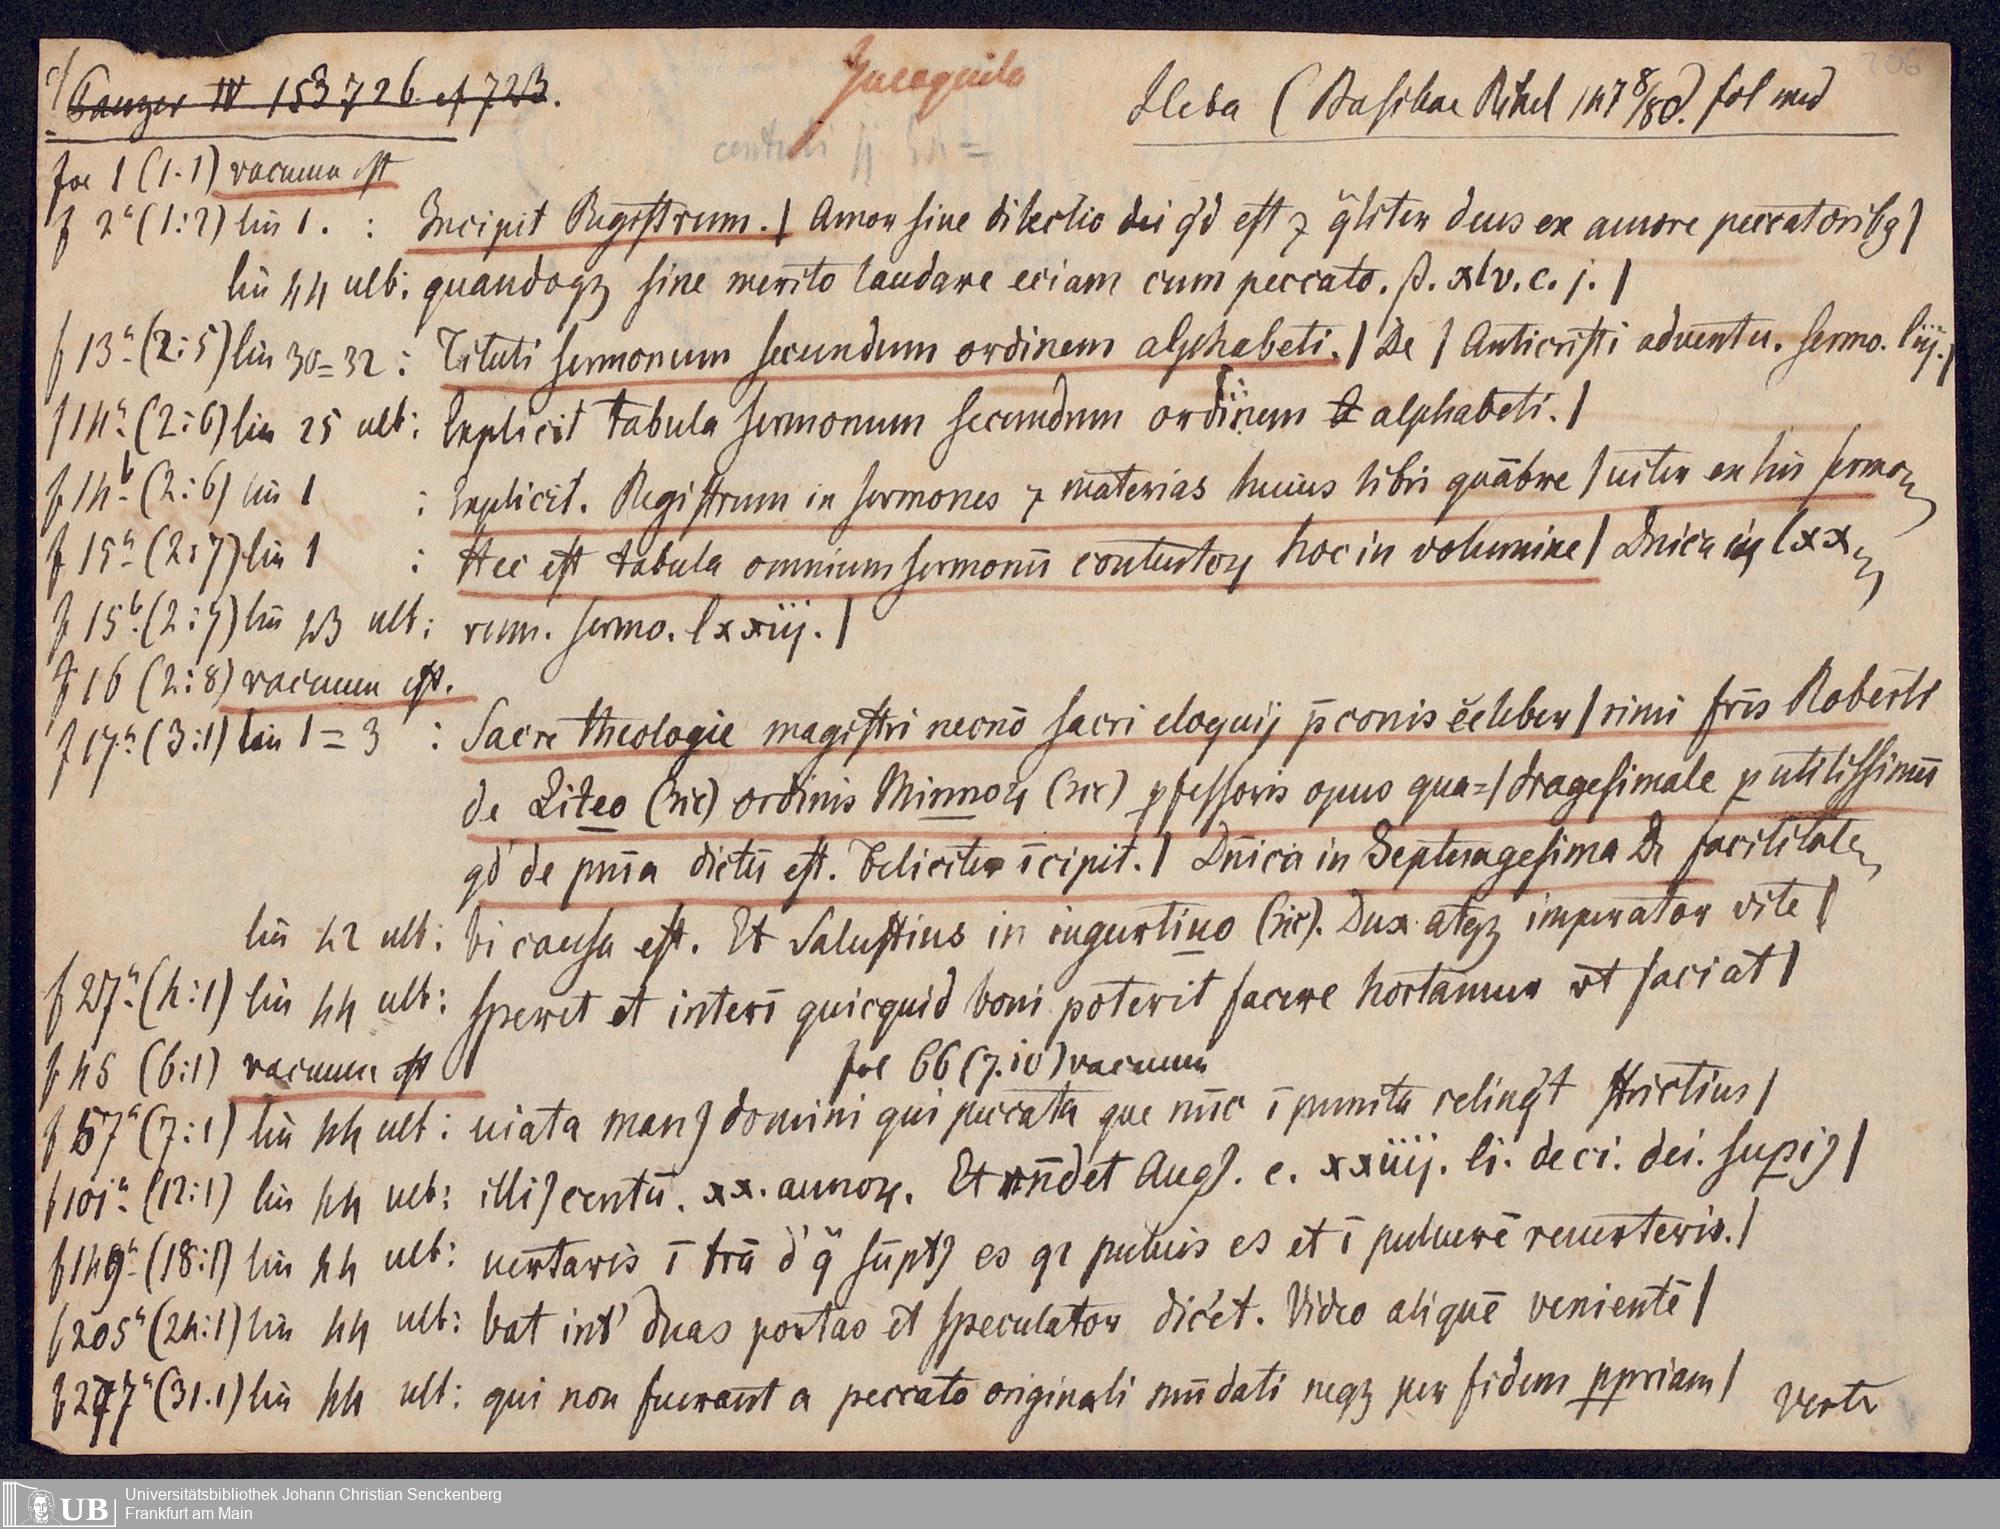 cf Panzer IV 153 726 cf 723.
Ileba (Basileae Rihel 147 8/80) fol med
fol 1 (1.1) vacuum est
f 2a (1:2) lin 1. : Incipit Registrum. | Amor sine dilectio dei qd est ⁊ qliter deus ex amore peccatoribꝫ |
lin 44 ult: quandoqꝫ sine merito laudare eciam cum peccato. β. xlv. c. j. |
f 13a (2:5) lin 30=32 : Tituli sermonum secundum ordinem alphabeti. | De | Anticristi aduentu. sermo. liij. |
f 14a (2:6) lin 25 ult: Explicit tabula sermonum secundum ordinem alphabeti. |
f 14b (2:6) lin 1 : Explicit. Registrum in sermones ⁊ māterias huius libri quābre | uiter ex his sermoꝝ
f 15a (2:7) lin 1 : Hec est tabula omnium sermonū contentoꝝ hoc in volumine | Dnica in lxx
f 15b (2:7) lin 43 ult: rum. sermo. lxxiij. |
f 16 (2:8) vacuum est.
f 17a (3:1) lin 1=3 : Sacre theologie magistri necnō sacri eloquij p̄conis celeber | rimi fr̄is Roberti
de Liteo (sic) ordinis Minnoꝝ (sic) ꝓfessoris opus qua= | dragesimale ꝑutilissimū
qd de pnīa dictū est. Feliciter īcipit. | Dn̄ica in Septuagesima De facilitate
lin 42 ult: bi causa est. Et Salustius in iugurtino (sic). Dux atqꝫ imperator vite |
f 27a (4:1) lin 44 ult: speret et interī quicquid boni poterit facere hortamur vt faciat |
f 45 (6:1) vacuum est fol 66 (7.10) vacuum
f 57a (7:1) lin 44 ult: uiata manꝫ domini qui peccata que nūc īpunita relinqt strictius |
f 101a (12:1) lin 44 ult: illiꝫ centū. xx. annoꝝ. Et rn̄det Augꝭ. c. xxiiij. li. de ci. dei. supiꝫ |
f 149a (18:1) lin 44 ult: uertaris ī trā d' q̄ sūptꝫ es qꝛ puluis es et ī puluerē reuerteris. |
f 205a (24:1) lin 44 ult: bat int' duas portas et speculator dicet. Video aliquē venientē |
f 277a (31.1) lin 44 ult: qui non fuerant a peccato originali mūdati neqꝫ per fidem ꝓpriam | Verte
UB Universitätsbibliothek Johann Christian Senckenberg
Frankfurt am Main